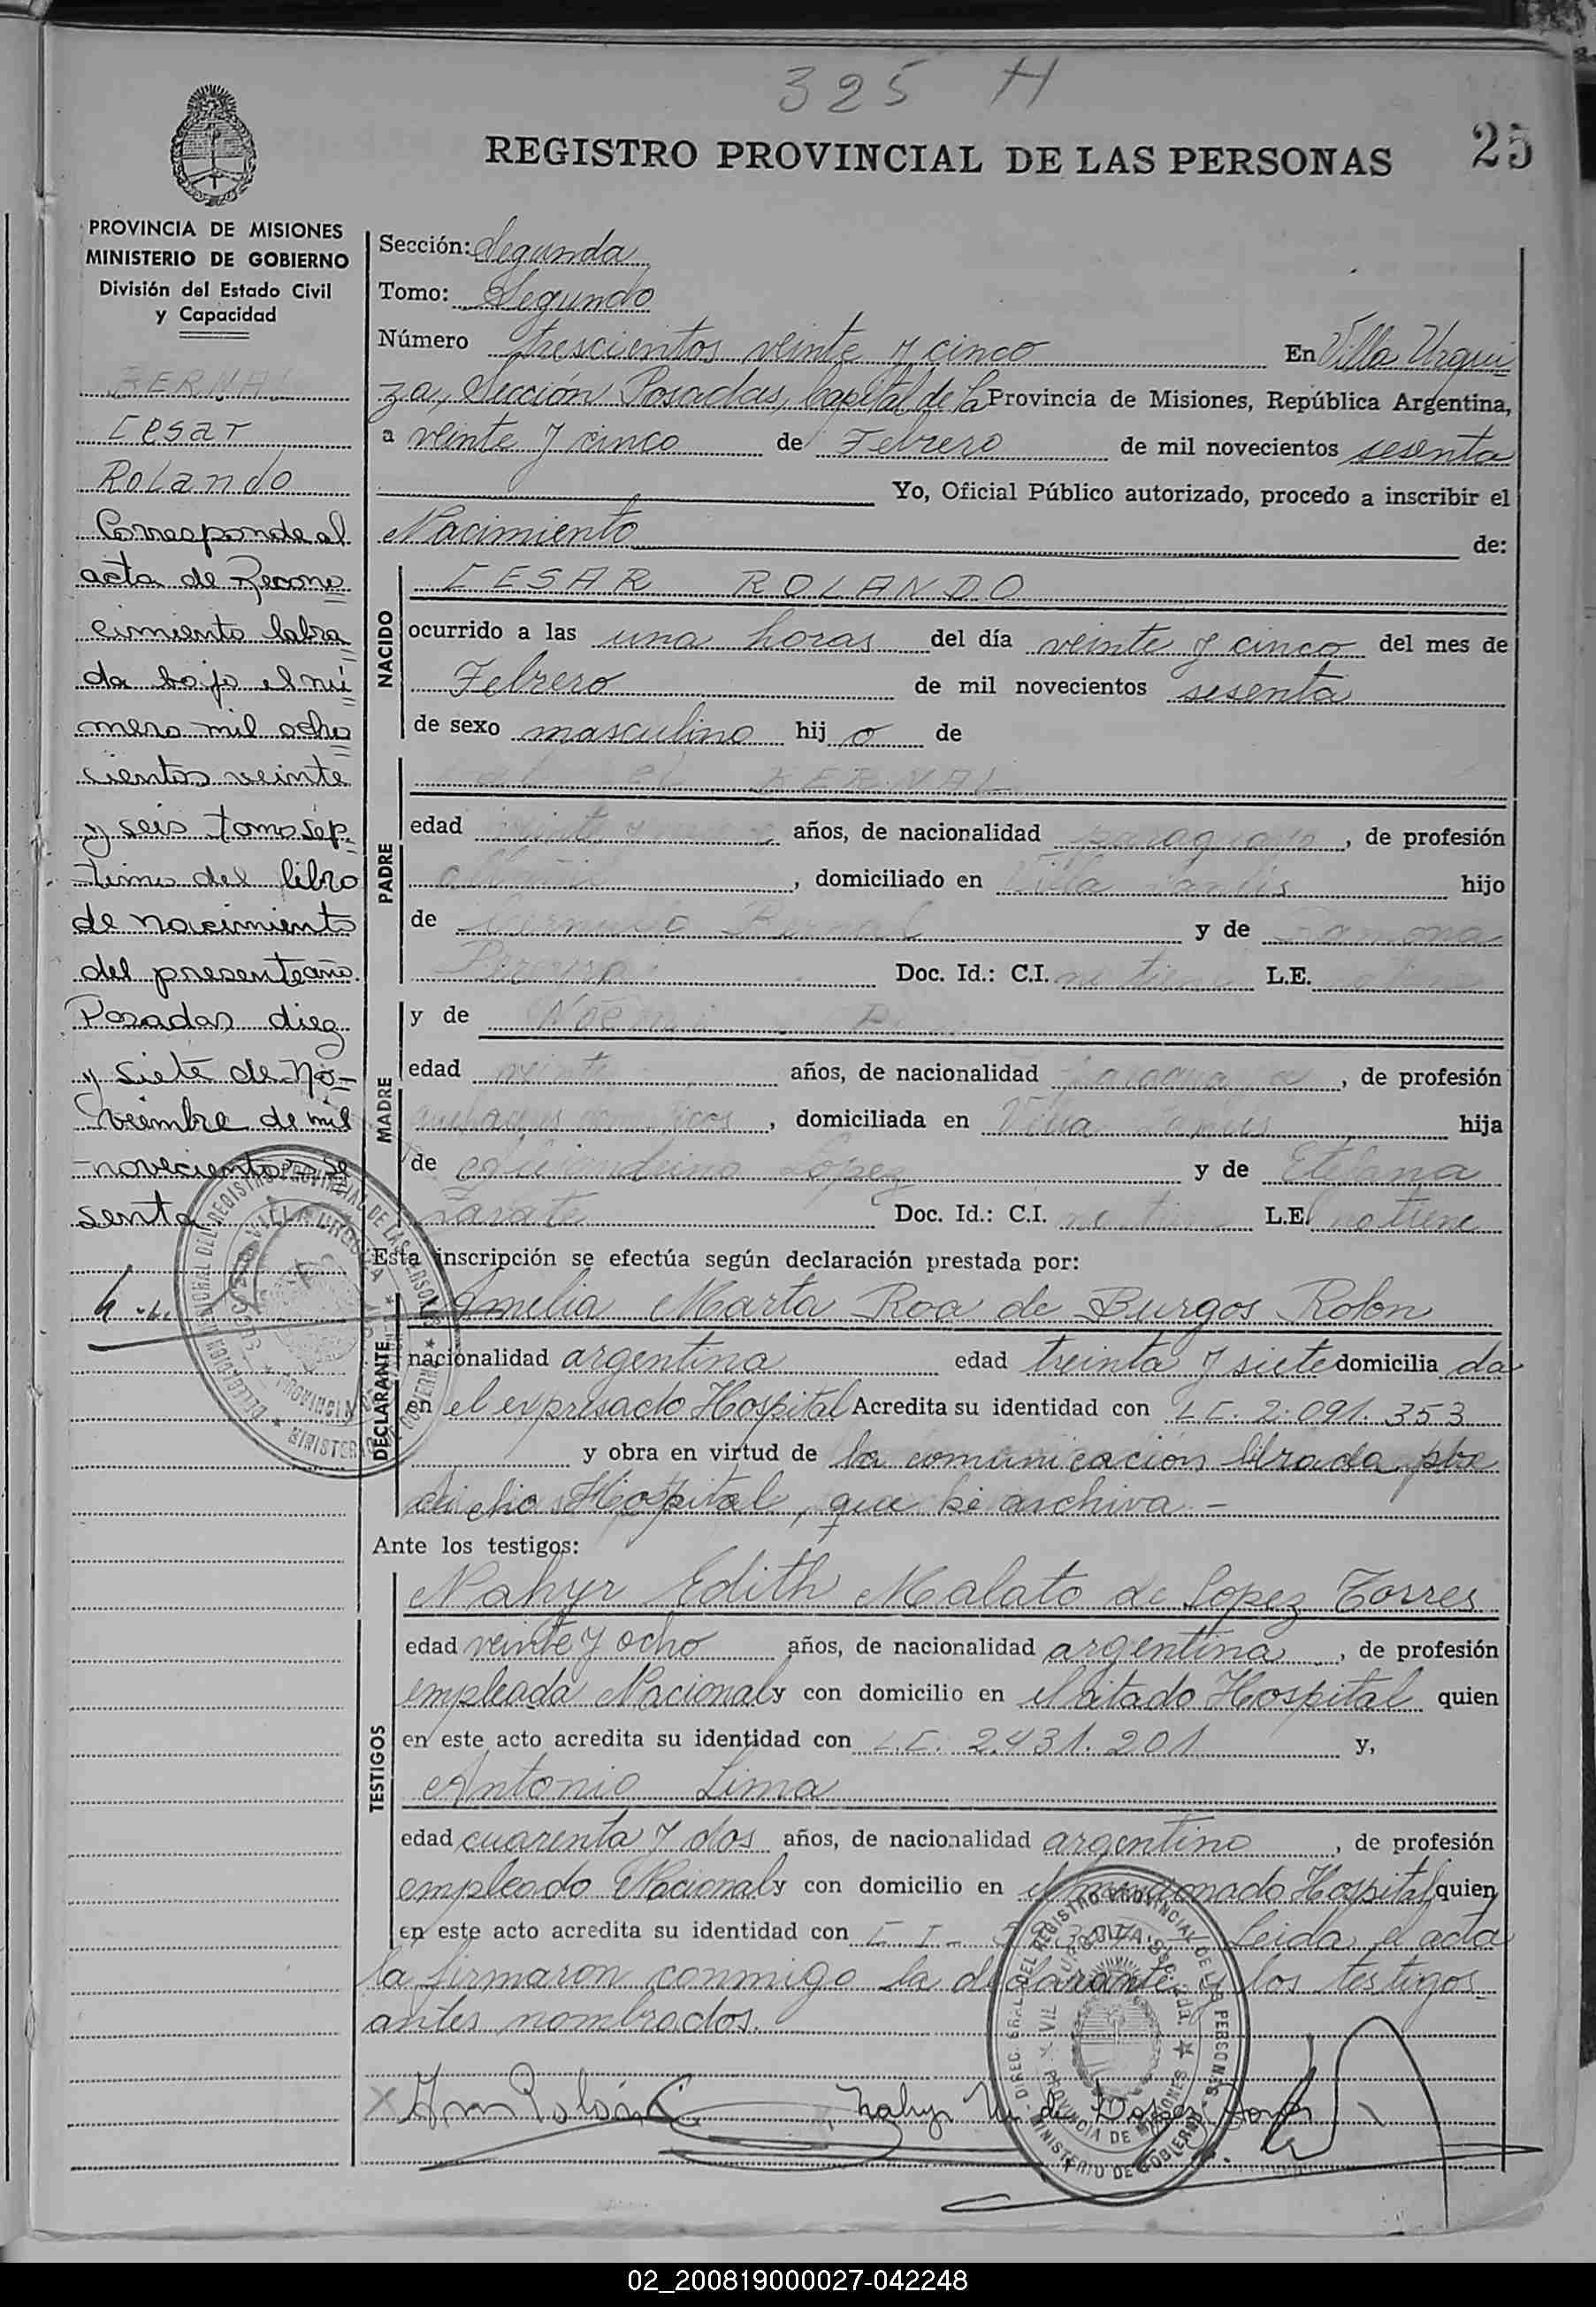 325 H
REGISTRO PROVINCIAL DE LAS PERSONAS
25
PROVINCIA DE MISIONES
MINISTERIO DE GOBIERNO
División del Estado Civil
y Capacidad
BERNAL
Cesar
Rolando
Corresponde al
acta de Recono
cimiento labra
da bajo el nú
mero mil ocho
cientos veinte
y seis tomo sép
timo del libro
de nacimiento
del presente año.
Posadas diez
y siete de No-
viembre de mil
novecientos se
senta
Sección: Segunda
Tomo: Segundo
Número trescientos veinte y cinco En Villa Urqui
za, Sección Posadas, Capital de la Provincia de Misiones, República Argentina,
a veinte y cinco de Febrero de mil novecientos sesenta
Yo, Oficial Público autorizado, procedo a inscribir el
Nacimiento de:
NACIDO
CESAR ROLANDO
ocurrido a las una horas del día veinte y cinco del mes de
Febrero de mil novecientos sesenta
de sexo masculino hij o de
PADRE
BERNAL
edad veinte y años, de nacionalidad paraguayo, de profesión
albañil, domiciliado en Villa hijo
de Bernal y de Ramona
Doc. Id.: C.I. no tiene L.E. no tiene
MADRE
y de Noemi
edad veinte años, de nacionalidad paraguaya, de profesión
quehaceres domesticos, domiciliada en Villa hija
de Lopez y de Etelvana
Zarate Doc. Id.: C.I. no tiene L.E. no tiene
Esta inscripción se efectúa según declaración prestada por:
DECLARANTE
Amelia Marta Roa de Burgos Rolon
nacionalidad argentina edad treinta y siete domicilia da
en el expresado Hospital Acredita su identidad con L.C. 2.091.353
y obra en virtud de la comunicación librada por
dicho Hospital, que se archiva -
Ante los testigos:
TESTIGOS
Nahyr Edith Malato de Lopez Torres
edad veinte y ocho años, de nacionalidad argentina, de profesión
empleada Nacional y con domicilio en el citado Hospital quien
en este acto acredita su identidad con L.C. 2.431.201 y,
Antonio Lima
edad cuarenta y dos años, de nacionalidad argentino, de profesión
empleado Nacional y con domicilio en el mencionado Hospital quien
en este acto acredita su identidad con C I - Leida el acta
la firmaron conmigo la declarante y los testigos
antes nombrados.
02_200819000027-042248